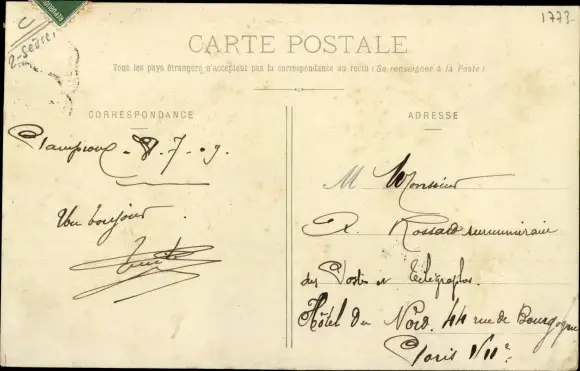 1773-
2-Sèvres
CARTE POSTALE
Tous les pays étrangers n'acceptent pas la correspondance au recto (Se renseigner à la Poste)
CORRESPONDANCE
8.7.09.
Un bonjour.
ADRESSE
M Monsieur
R. Rossard surnuméraire
des Postes et Télégraphes.
Hôtel du Nord. 44 rue de Bourgogne
Paris VIIe